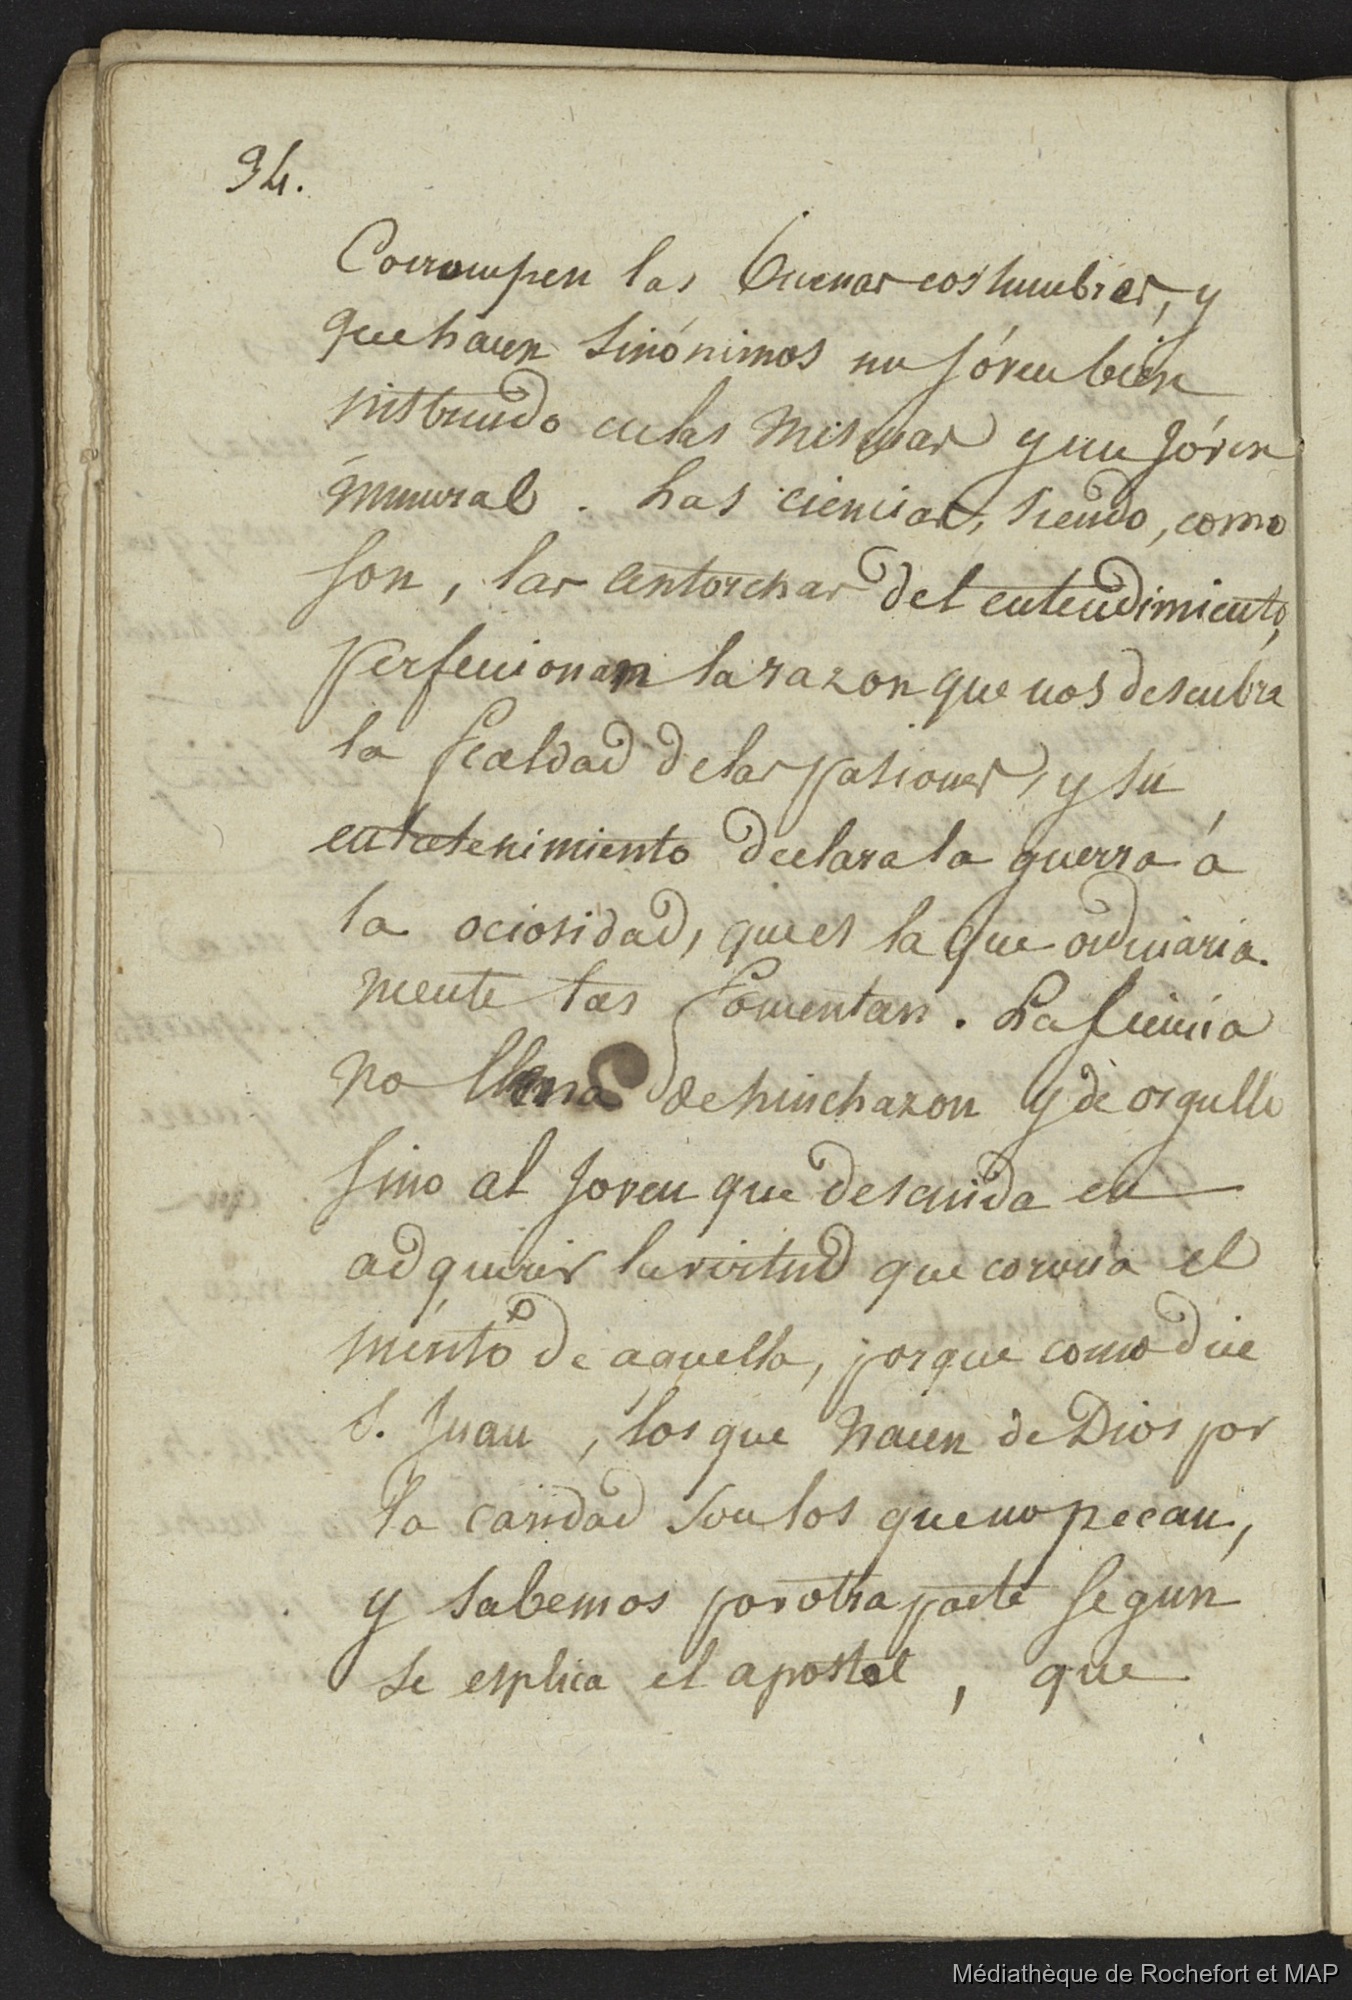 34.
Corrompen las buenas costumbres, y
que hacen sinónimos un jóven bien
instruido en las mismas y un jóven
inmoral. Las ciencias, siendo, como
son, las antorchas del entendimiento,
perfeccionan la razon que nos descubra
la fealdad de las pasiones, y su
entretenimiento declara la guerra á
la ociosidad, que es la que ordinaria-
mente las fomentan. La ciencia
no llena de hinchazon y de orgullo
sino al joven que descuida en
adquirir la virtud que corona el
mérito de aquella, porque como dice
S. Juan, los que nacen de Dios por
la caridad son los que no pecan,
y sabemos por otra parte segun
se esplica el apostol, que
Médiathèque de Rochefort et MAP